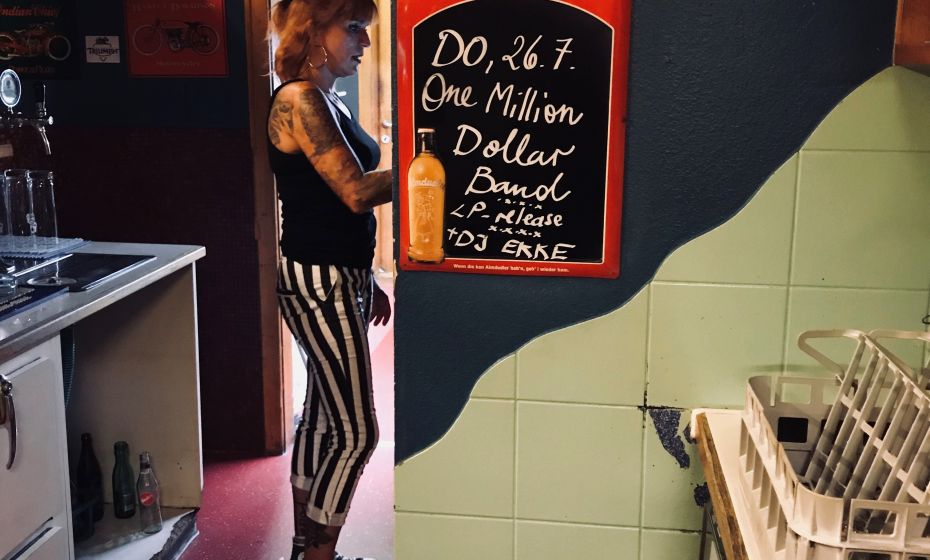 Indian Chief
TRIUMPH
HARLEY DAVIDSON
DO, 26.7.
One Million
Dollar
Band
x-x-x
LP-release
x-x-x-x
+DJ EKKE
Almdudler
Wenn die kan Almdudler hab'n, geh' i wieder ham.